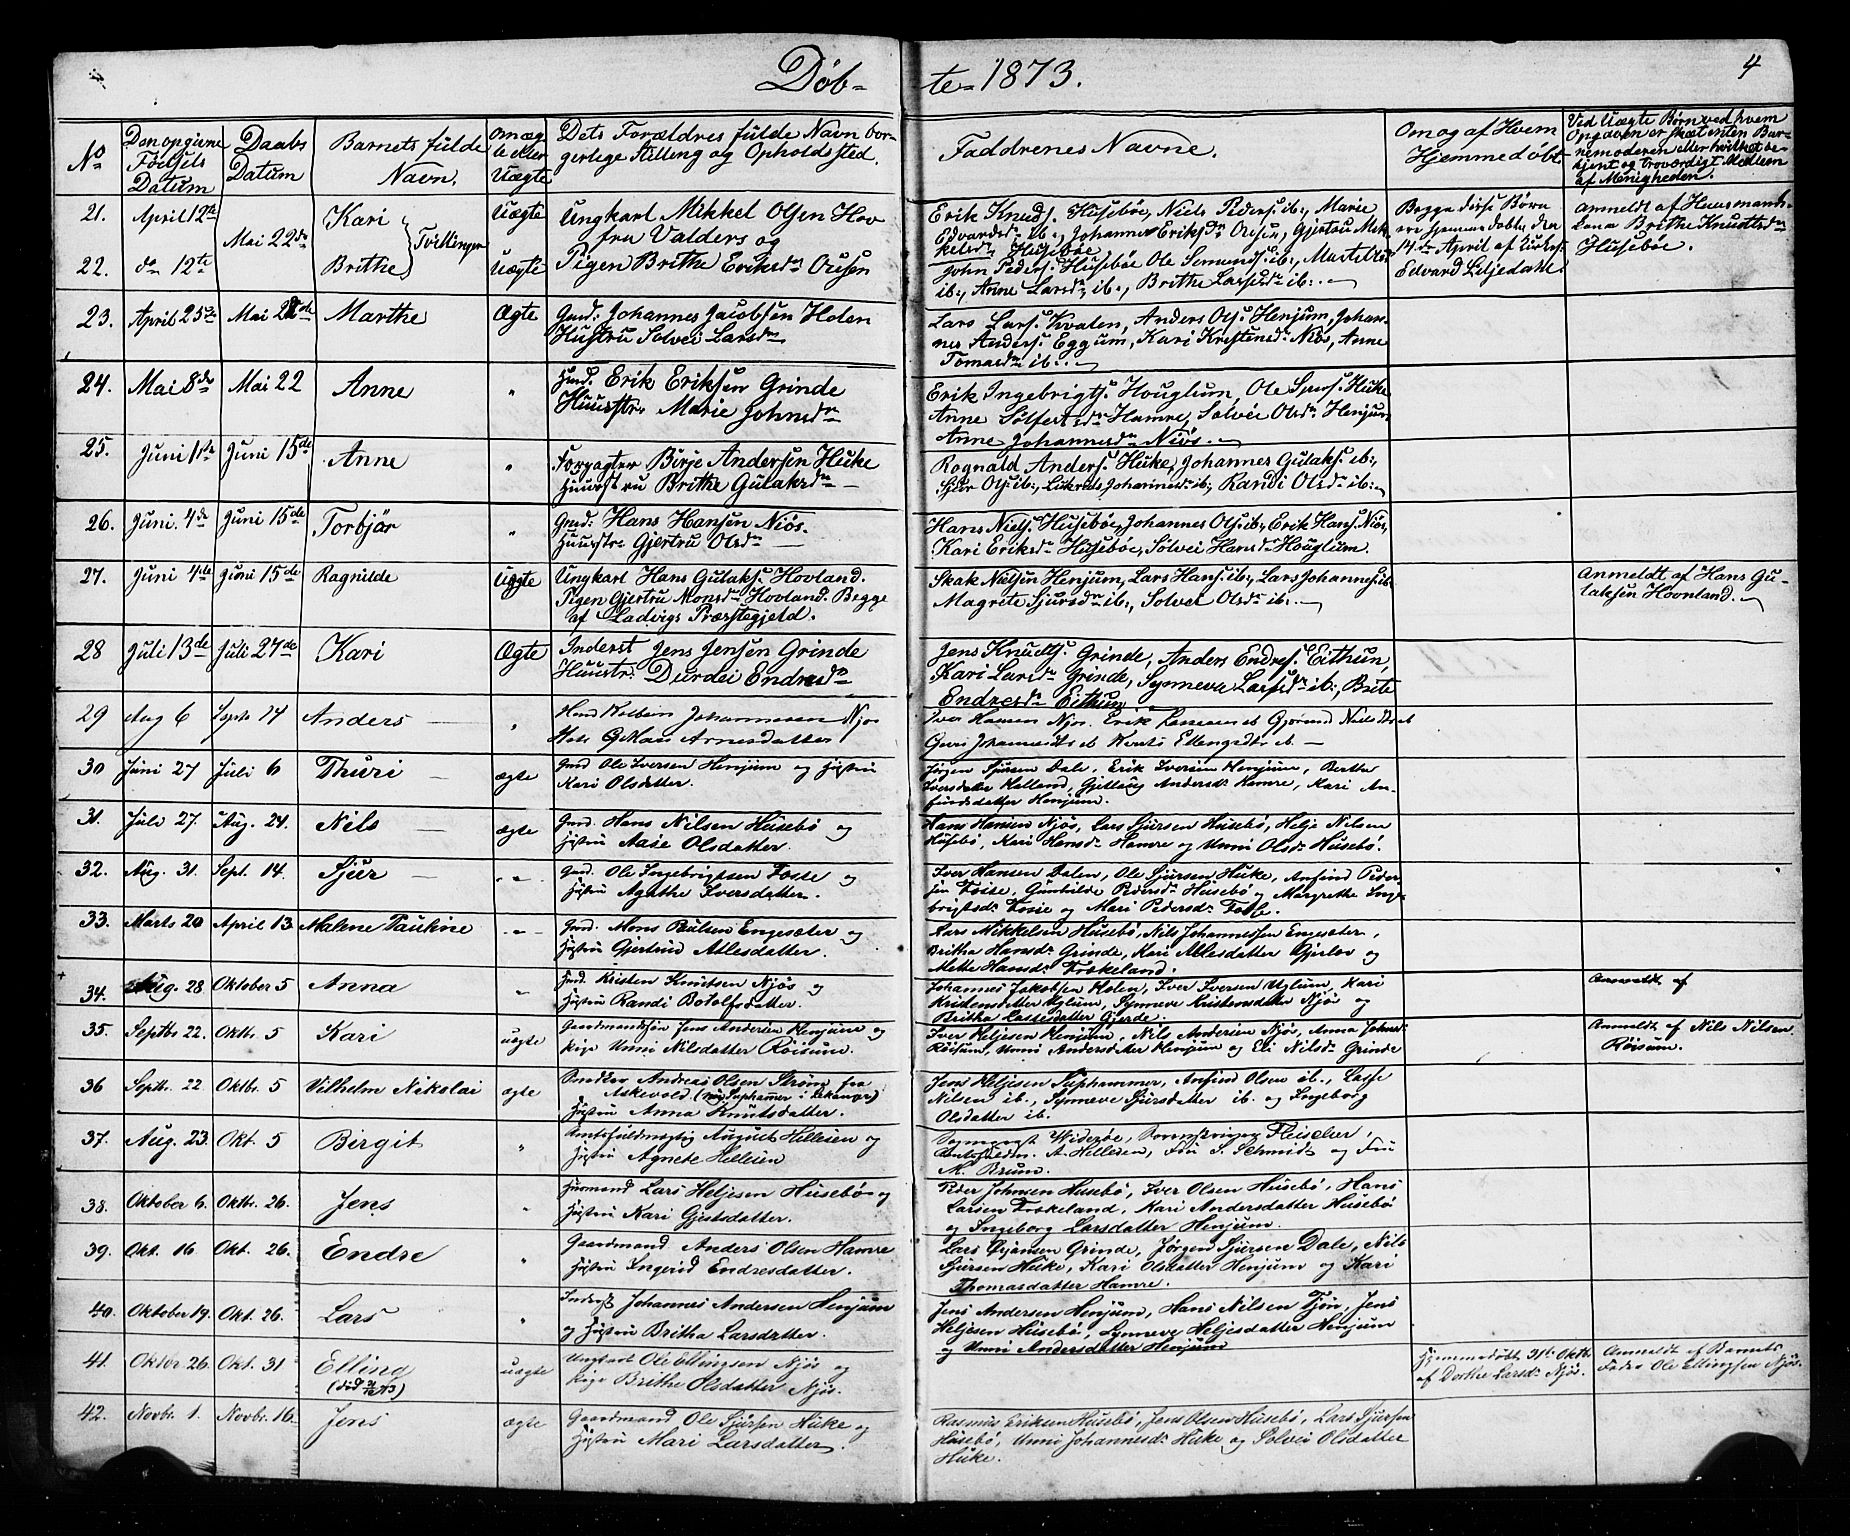 Døb-
te- 1873.
4
No
Den opgivne Fødsels Datum
Daabs Datum
Barnets fulde Navn.
Om ægte eller Uægte
Dets Forældres fulde Navn borgerlege Stilling og Opholdssted.
Faddrenes Navne.
Om og af Hvem Hjemmedøbt
Ved Uægte Børn ved hvem Opgaven er skeet enten Barnemoderen eller hvilket bekjent og troværdigt Medlem af Menigheden.
21. April 12te Mai 22de Kari Tvillinger Uægte Ungkarl Mikkel Olsen Hov fra Valders og
22. do 12te Brithe Uægte Pigen Brithe Eriksdr Ousen
Erik Knuds. Husebøe, Niels Peders. ib:, Marie
Edvardsdr ib:, Johanne Eriksdr Ousen, Gjertru Mikkelsdr Husebøe
John Peders. Husebøe Ole Semunds. ib:,
ib:, Anne Larsdr ib:, Brithe Lassesdr ib:.
Begge disse Børn ere hjemmedøbte den 14de April af Edvard Liljedahl.
Anmeldt af Huusmandskona Brithe Knudtsdr Husebøe.
23. April 25de Mai 22de Marthe Ægte Gmd: Johannes Jacobsen Holen
Hustru Solvei Larsdr
Lars Lars. Kvalen, Anders Ols. Henjum, Johannes Anders. Eggum, Kari Kristensdr Niøs, Anne
Tomasdr ib:.
24. Mai 8de Mai 22 Anne " Gmd. Erik Eriksen Grinde
Huustr. Marie Johnsdr
Erik Ingebrigts. Houglum, Ole Huke
Anne Solfestsdr Hamre, Solvei Olsdr Henjum,
Anne Johannesdr Niøs.
25. Juni 1ste Juni 15de Anne " Forpagter Birje Andersen Huke
Huustru Brithe Gulaksdr
Rognald Anders. Huke, Johannes Gulaks. ib:,
Sjur Ols. ib:, Johannesdr ib:, Randi Olsdr ib:
26. Juni 4de Juni 15de Torbjør " Gmd: Hans Hansen Niøs.
Huustr. Gjertru Olsdr
Hans Niels. Husebøe, Johannes Ols. ib:, Erik Hans. Niøs,
Kari Eriksdr Husebøe, Solvei Hansdr Houglum.
27. Juni 4de Juni 15de Ragnilde Uægte Ungkarl Hans Gulaks. Hovland.
Pigen Gjertru Monsdr Hovland. Begge
af Ladvigs Præstegjeld.
Skak Nielsen Henjum, Lars Hans. ib:, Lars Johannes. ib:
Magrete Sjursdr ib:, Solvei Olsdr ib:.
Anmeldt af Hans Gulaksen Hovnland.
28 Juli 13de Juli 27de Kari Ægte Inderst Jens Jensen Grinde
Huustr. Durdei Endresdr
Jens Knudts. Grinde, Anders Endres. Eithun,
Kari Larsdr Grinde, Synneva Larsdr ib:, Brite
Endresdr Eithun.
29 Aug 6 Septr 14 Anders " Kolbein Johannesen Njøs
Arnesdatter
Iver Hansen Njøs. Erik Gjørond Nielsdtr ib
Guri Johannesdtr ib Ellengsdtr ib.
30 Juni 27 Juli 6 Thuri ægte Gmd Ole Iversen Henjum og Hustru
Kari Olsdatter.
Jørgen Sjursen Dale, Erik Iversen Henjum, Bertha
Iversdatter Hamre, Kari Anfindsdatter Henjum.
31. Juli 27. Aug. 24. Nils ægte Gmd. Hans Nilsen Husebø og
Hustru Aase Olsdatter.
Hans Hansen Njøs, Lars Sjursen Husebø, Helje Nilsen
Husebø, Kari Hansdr Hamre og Unni Olsdr Husebø.
32. Aug. 31. Sept. 14. Sjur " " Gmd. Ole Ingebrigtsen Fosse og
Hustru Agathe Iversdatter.
Iver Hansen Dalen, Ole Sjursen Huke, Anfind Pedersen Fosse, Gunhilde Pedersdr Husebø og Margrethe Ingebrigtsdr Fosse og Mari Pedersdr Fosse.
33. Marts 20 April 13 Malene Pauline " " Gmd. Mons Paulsen Engesæter og
Hustru Gjertrud Atlesdatter.
Lars Mikkelsen Husebø, Nils Johannessen Engesæter,
Britha Hansdr Grinde, Kari Atlesdatter Gjerløv og
Mette Hansdr Frøkeland.
34. Aug. 28. Oktober 5 Anna " Gmd. Kristen Knutsen Njøs og
Hustru Randi Botolfsdatter.
Johannes Jakobsen Holen, Iver Iversen Uglum, Kari
Kristensdatter Uglum, Synneve Kristensdatter Njøs og
Britha Lassesdatter Gjerde.
Anmeldt af
35. Septbr. 22. Oktbr. 5 Kari uægte Gaardmandssøn Jens Andersen Henjum og
Pige Unni Nilsdatter Røisum.
Iver Heljesen Henjum, Nils Andersen Njøs, Anna Johnsdr
Røisum, Unni Andersdatter Henjum og Eli Nilsdr Grinde
Anmeldt af Nils Nilsen Røisum.
36 Septbr. 22. Oktbr. 5 Vilhelm Nikolai ægte Andreas Olsen Strøm fra
Askevold (nu Suphamer i Lekanger)
Hustru Anna Knutsdatter.
Jens Heljesen Suphammer, Anfind Olsen ib., Lasse
Nilsen ib., Synneve Sjursdatter ib. og Ingeborg
Olsdatter ib.
37. Aug. 23. Okt. 5 Birgit " Amtsfuldmægtig August Hellesen og
Hustru Agnete Hellesen
Sogneprest Widerøe, Sorenskriver Fleischer,
A. Hellesen, Fru S. Schmidt og Fru
M. Bruun.
38. Oktober 6. Oktbr. 26. Jens " Husmand Lars Heljesen Husebø og
Hustru Kari Gjertsdatter.
Peder Johnsen Husebø, Iver Olsen Husebø, Hans
Larsen Frøkeland, Kari Andersdatter Husebø
og Ingeborg Larsdatter Henjum.
39. Okt. 16. Okt. 26. Endre " Gaardmand Anders Olsen Hamre
Hustru Ingerid Endresdatter.
Lars Grinde, Jørgen Sjursen Dale, Nils
Sjursen Huke, Kari Olsdatter Henjum og Kari
Thomasdatter Hamre.
40. Oktober 19. Okt. 26. Lars " Inderst Johannes Andersen Henjum
og Hustru Britha Larsdatter.
Jens Andersen Henjum, Hans Nilsen Jens
Heljesen Husebø, Synneve Heljesdatter Henjum
og Unni Andersdatter Henjum
41. Oktbr. 26. Okt. 31 Elling uægte Ungkarl Ole Ellingsen Njøs og
Pige Brithe Olsdatter Njøs.
Hjemmedøbt 31te Oktb. af Dorthe Larsdr Njøs.
Anmeldt af Barnets Fader Ole Ellingsen Njøs.
42. Novbr. 1. Novbr. 16. Jens ægte Gaardmand Ole Sjursen Huke og
Hustru Mari Larsdatter.
Rasmus Eriksen Husebø, Jens Olsen Husebø, Lars Sjursen
Husebø, Unni Johannesdr Huke og Solvei Olsdatter
Huke.